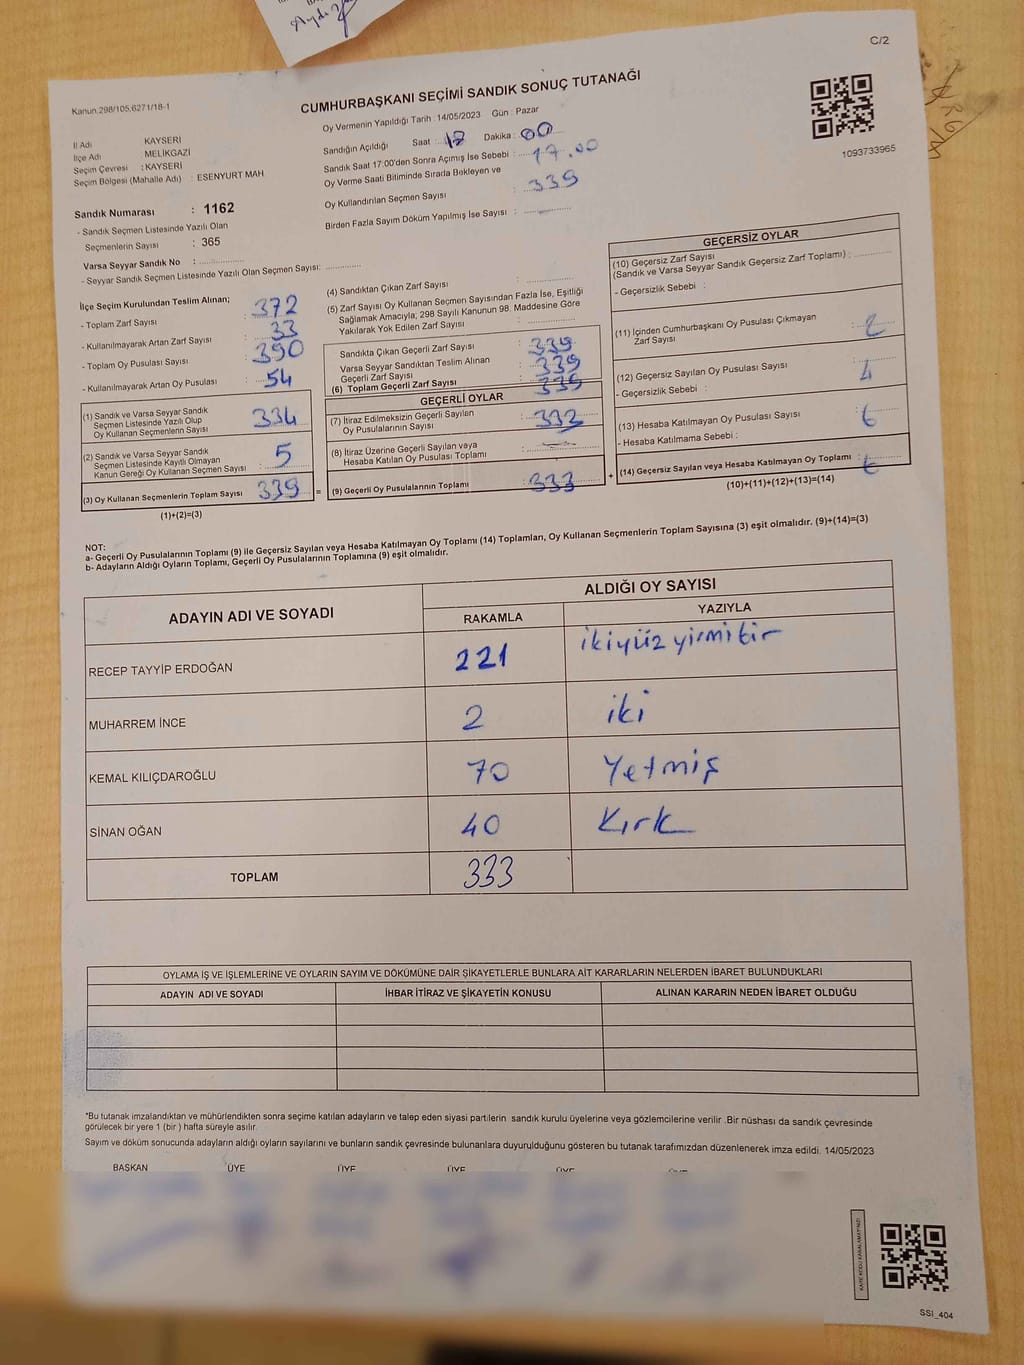 C/2
Kanun 298/105,6271/18-1
CUMHURBAŞKANI SEÇİMİ SANDIK SONUÇ TUTANAĞI
Oy Vermenin Yapıldığı Tarih : 14/05/2023 Gün : Pazar
İl Adı KAYSERİ
İlçe Adı MELİKGAZİ
Seçim Çevresi : KAYSERİ
Seçim Bölgesi (Mahalle Adı) : ESENYURT MAH
Sandığın Açıldığı Saat : Dakika : 00
Sandık Saat 17:00'den Sonra Açımış İse Sebebi : 17.00
Oy Verme Saati Bitiminde Sırada Bekleyen ve
Oy Kullandırılan Seçmen Sayısı : 339
Birden Fazla Sayım Döküm Yapılmış İse Sayısı :
1093733965
Sandık Numarası : 1162
- Sandık Seçmen Listesinde Yazılı Olan
Seçmenlerin Sayısı : 365
Varsa Seyyar Sandık No :
- Seyyar Sandık Seçmen Listesinde Yazılı Olan Seçmen Sayısı:
İlçe Seçim Kurulundan Teslim Alınan;
- Toplam Zarf Sayısı : 372
- Kullanılmayarak Artan Zarf Sayısı : 33
- Toplam Oy Pusulası Sayısı : 390
- Kullanılmayarak Artan Oy Pusulası : 54
(1) Sandık ve Varsa Seyyar Sandık
Seçmen Listesinde Yazılı Olup
Oy Kullanan Seçmenlerin Sayısı : 334
(2) Sandık ve Varsa Seyyar Sandık
Seçmen Listesinde Kayıtlı Olmayan
Kanun Gereği Oy Kullanan Seçmen Sayısı : 5
(3) Oy Kullanan Seçmenlerin Toplam Sayısı : 339 =
(1)+(2)=(3)
(4) Sandıktan Çıkan Zarf Sayısı :
(5) Zarf Sayısı Oy Kullanan Seçmen Sayısından Fazla İse, Eşitliği
Sağlamak Amacıyla, 298 Sayılı Kanunun 98. Maddesine Göre
Yakılarak Yok Edilen Zarf Sayısı :
Sandıkta Çıkan Geçerli Zarf Sayısı : 339
Varsa Seyyar Sandıktan Teslim Alınan
Geçerli Zarf Sayısı : 339
(6) Toplam Geçerli Zarf Sayısı : 339
GEÇERLİ OYLAR
(7) İtiraz Edilmeksizin Geçerli Sayılan
Oy Pusulalarının Sayısı : 333
(8) İtiraz Üzerine Geçerli Sayılan veya
Hesaba Katılan Oy Pusulası Toplamı :
(9) Geçerli Oy Pusulalarının Toplamı : 333 +
GEÇERSİZ OYLAR
(10) Geçersiz Zarf Sayısı
(Sandık ve Varsa Seyyar Sandık Geçersiz Zarf Toplamı) :
- Geçersizlik Sebebi :
(11) İçinden Cumhurbaşkanı Oy Pusulası Çıkmayan
Zarf Sayısı : 2
(12) Geçersiz Sayılan Oy Pusulası Sayısı : 4
- Geçersizlik Sebebi :
(13) Hesaba Katılmayan Oy Pusulası Sayısı : 6
- Hesaba Katılmama Sebebi :
(14) Geçersiz Sayılan veya Hesaba Katılmayan Oy Toplamı : 6
(10)+(11)+(12)+(13)=(14)
NOT:
a- Geçerli Oy Pusulalarının Toplamı (9) ile Geçersiz Sayılan veya Hesaba Katılmayan Oy Toplamı (14) Toplamları, Oy Kullanan Seçmenlerin Toplam Sayısına (3) eşit olmalıdır. (9)+(14)=(3)
b- Adayların Aldığı Oyların Toplamı, Geçerli Oy Pusulalarının Toplamına (9) eşit olmalıdır.
ADAYIN ADI VE SOYADI ALDIĞI OY SAYISI
RAKAMLA YAZIYLA
RECEP TAYYİP ERDOĞAN 221 ikiyüz yirmibir
MUHARREM İNCE 2 iki
KEMAL KILIÇDAROĞLU 70 Yetmiş
SİNAN OĞAN 40 Kırk
TOPLAM 333
OYLAMA İŞ VE İŞLEMLERİNE VE OYLARIN SAYIM VE DÖKÜMÜNE DAİR ŞİKAYETLERLE BUNLARA AİT KARARLARIN NELERDEN İBARET BULUNDUKLARI
ADAYIN ADI VE SOYADI İHBAR İTİRAZ VE ŞİKAYETİN KONUSU ALINAN KARARIN NEDEN İBARET OLDUĞU
*Bu tutanak imzalandıktan ve mühürlendikten sonra seçime katılan adayların ve talep eden siyasi partilerin sandık kurulu üyelerine veya gözlemcilerine verilir. Bir nüshası da sandık çevresinde
görülecek bir yere 1 (bir) hafta süreyle asılır.
Sayım ve döküm sonucunda adayların aldığı oyların sayılarını ve bunların sandık çevresinde bulunanlara duyurulduğunu gösteren bu tutanak tarafımızdan düzenlenerek imza edildi. 14/05/2023
BAŞKAN ÜYE ÜYE ÜYE ÜYE
KARE KODU KARALAMAYINIZ!
SSİ_404